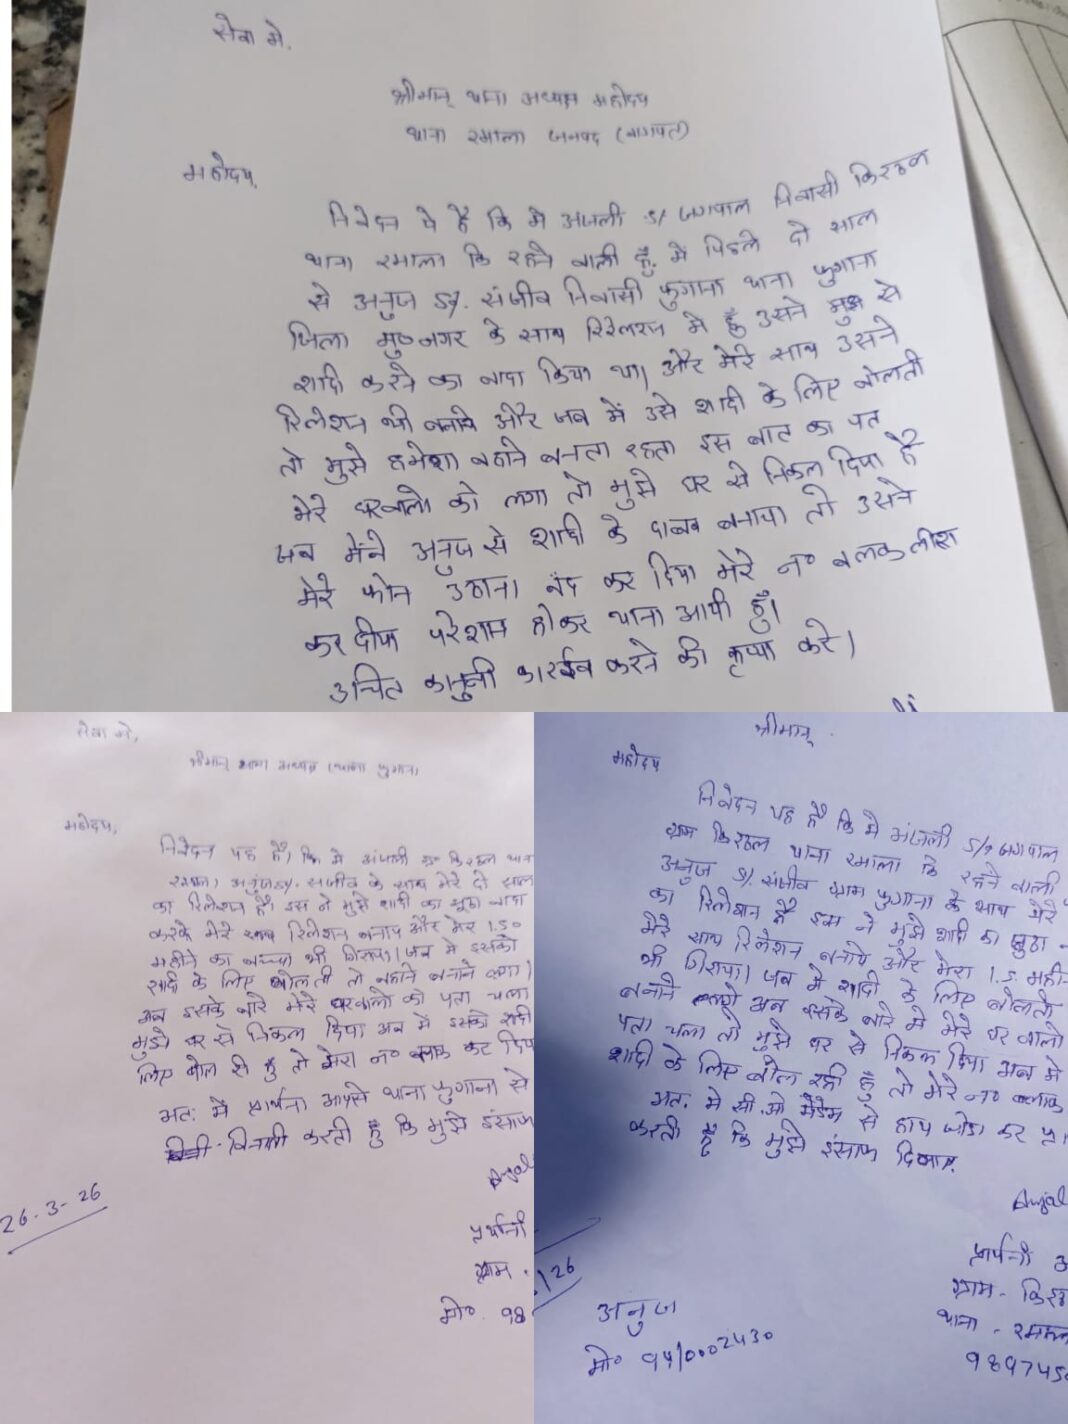 सेवा मे,
श्रीमान् थाना अध्यक्ष महोदय
थाना रमाला जनपद (बागपत)
महोदय,
निवेदन ये है कि मे अंजली S/ जगपाल निवासी किरठल
थाना रमाला कि रहने वाली हूँ. में पिछले दो साल
से अनुज S/. संजीव निवासी फुगाना थाना फुगाना
जिला मु०नगर के साथ रिलेशन मे हूँ उसने मुझ से
शादी करने का वादा किया था। और मेरे साथ उसने
रिलेशन भी बनाये और जब में उसे शादी के लिए बोलती
तो मुझे हमेशा बहाने बनता रहता इस बात का पत
मेरे घरवालो को लगा तो मुझे घर से निकल दिया है
जब मेंने अनुज से शादी के दाबव बनाया तो उसने
मेरे फोन उठाना बंद कर दिया मेरे न० बलक लीस्ट
कर दीया परेशान होकर थाना आयी हूँ।
उचित कानुनी कारईव करने की कृप्या करे।
सेवा मे,
श्रीमान् थाना अध्यक्ष (थाना फुगाना)
महोदय,
निवेदन यह है। कि मे अंजली ग्रा० किरठल थाना
रमाला अनुज S/. संजीव के साथ मेरे दो साल
का रिलेशन है। इस ने मुझे शादी का झूठा वादा
करके मेरे साथ रिलेशन बनाय और मेरा 1.50
महीने का बच्चा भी गिराया। जब मे इसको
शादी के लिए बोलती तो बहाने बनाने लगा।
अब इसके बारे मेरे घरवालो को पता चला
मुझे घर से निकल दिया अब में इसको शादी
लिए बोल री हूं तो मेरा न० ब्लाक कर दिया
अतः में प्रार्थना आपसे थाना फुगाना से
विनती करती हूँ कि मुझे इंसाफ
प्रार्थनी
ग्राम -
मो०. 98
26-3-26
श्रीमान्
महोदय
निवेदन यह है कि मे अंजली S/० जगपाल
ग्राम किरठल थाना रमाला कि रहने वाली
अनुज S/. संजीव ग्राम फुगाना के साथ मेरे
का रिलेशन है इस ने मुझे शादी का झुठा
मेरे साथ रिलेशन बनाये और मेरा 1.5 महीने
भी गिराया। जब में शादी के लिए बोलती
बनाने लगे अब इसके बारे मे मेरे घर वालो
पता चला तो मुझे घर से निकल दिया अब मे
शादी के लिए बोल रही हूँ तो मेरे न० ब्लाक
अतः मे सी.ओ मैडम से हाथ जोडा कर प्रा
करती हूँ कि मुझे इंसाफ दिलाए.
Anjal
प्रार्थनी अ
ग्राम - किरठ
थाना - रमाला
989745
/26
अनुज